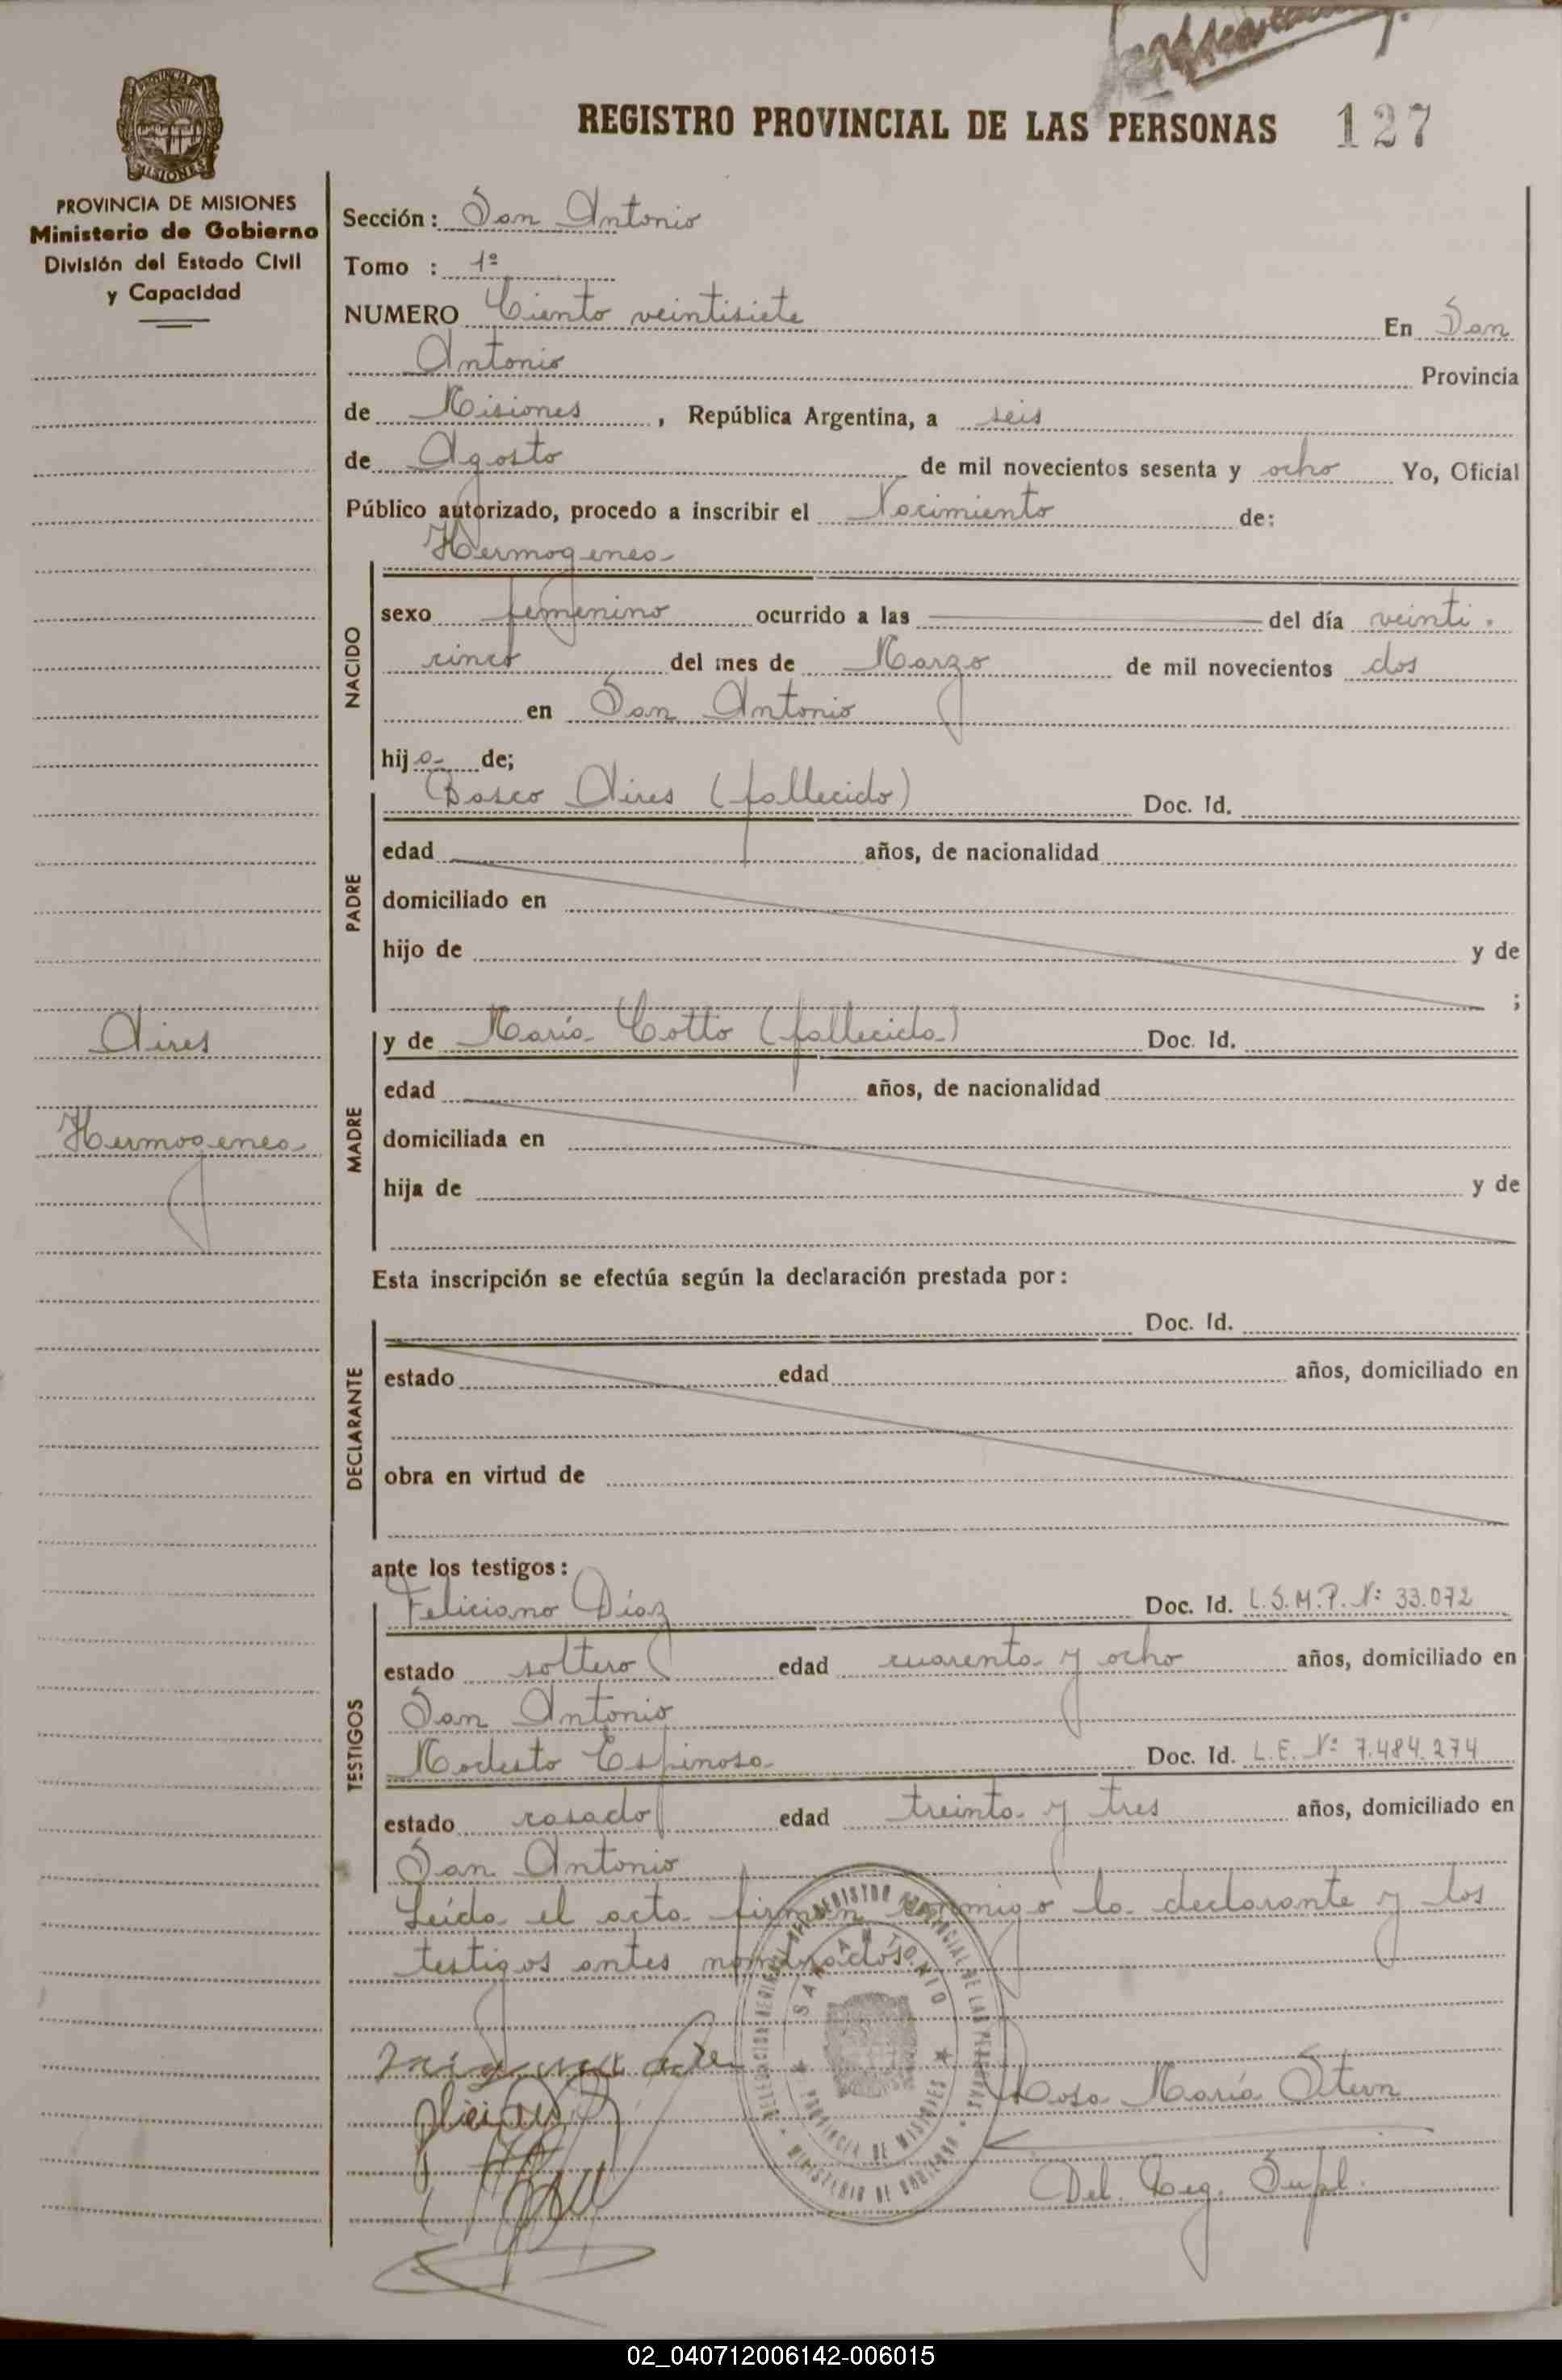 REGISTRO PROVINCIAL DE LAS PERSONAS 127
PROVINCIA DE MISIONES
Ministerio de Gobierno
División del Estado Civil
y Capacidad
Sección: San Antonio
Tomo : 1º
NUMERO Ciento veintisiete En San
Antonio Provincia
de Misiones, República Argentina, a seis
de Agosto de mil novecientos sesenta y ocho Yo, Oficial
Público autorizado, procedo a inscribir el Nacimiento de:
NACIDO
Hermogenea
sexo femenino ocurrido a las del día veinti.
cinco del mes de Marzo de mil novecientos dos
en San Antonio
hija de;
PADRE
Basco Aires (fallecido) Doc. Id.
edad años, de nacionalidad
domiciliado en
hijo de y de
;
Aires
Hermogenea
MADRE
y de María Cotto (fallecida) Doc. Id.
edad años, de nacionalidad
domiciliada en
hija de y de
Esta inscripción se efectúa según la declaración prestada por:
DECLARANTE
Doc. Id.
estado edad años, domiciliado en
obra en virtud de
ante los testigos:
TESTIGOS
Feliciano Díaz Doc. Id. L.S.M.P. Nº 33.072
estado soltero edad cuarenta y ocho años, domiciliado en
San Antonio
Modesto Espinosa Doc. Id. L.E. Nº 7.484.274
estado casado edad treinta y tres años, domiciliado en
San Antonio
Leída el acta firman conmigo la declarante y los
testigos antes nombrados.
SAN ANTONIO
PROVINCIA DE MISIONES
MINISTERIO DE GOBIERNO
Rosa María Stern
Del. Reg. Supl.
02_040712006142-006015